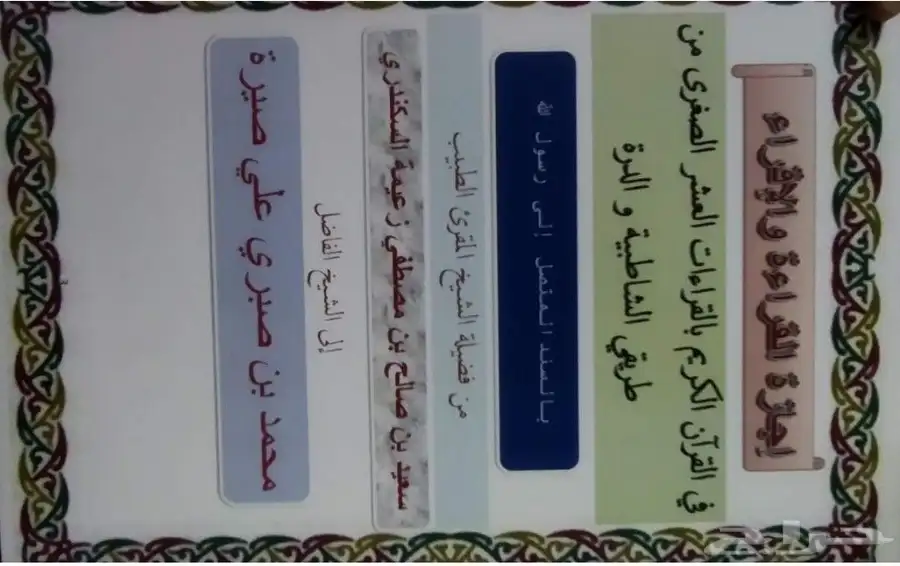 إجازة القراءة والإقراء
في القرآن الكريم بالقراءات العشر الصغرى من
طريقي الشاطبية و الدرة
بالسند المتصل إلى رسول الله
من فضيلة الشيخ المقرئ الطبيب
سعيد بن صالح بن مصطفي زعيمة السكندري
إلى الشيخ الفاضل
محمد بن صبري علي صيرة
حراج